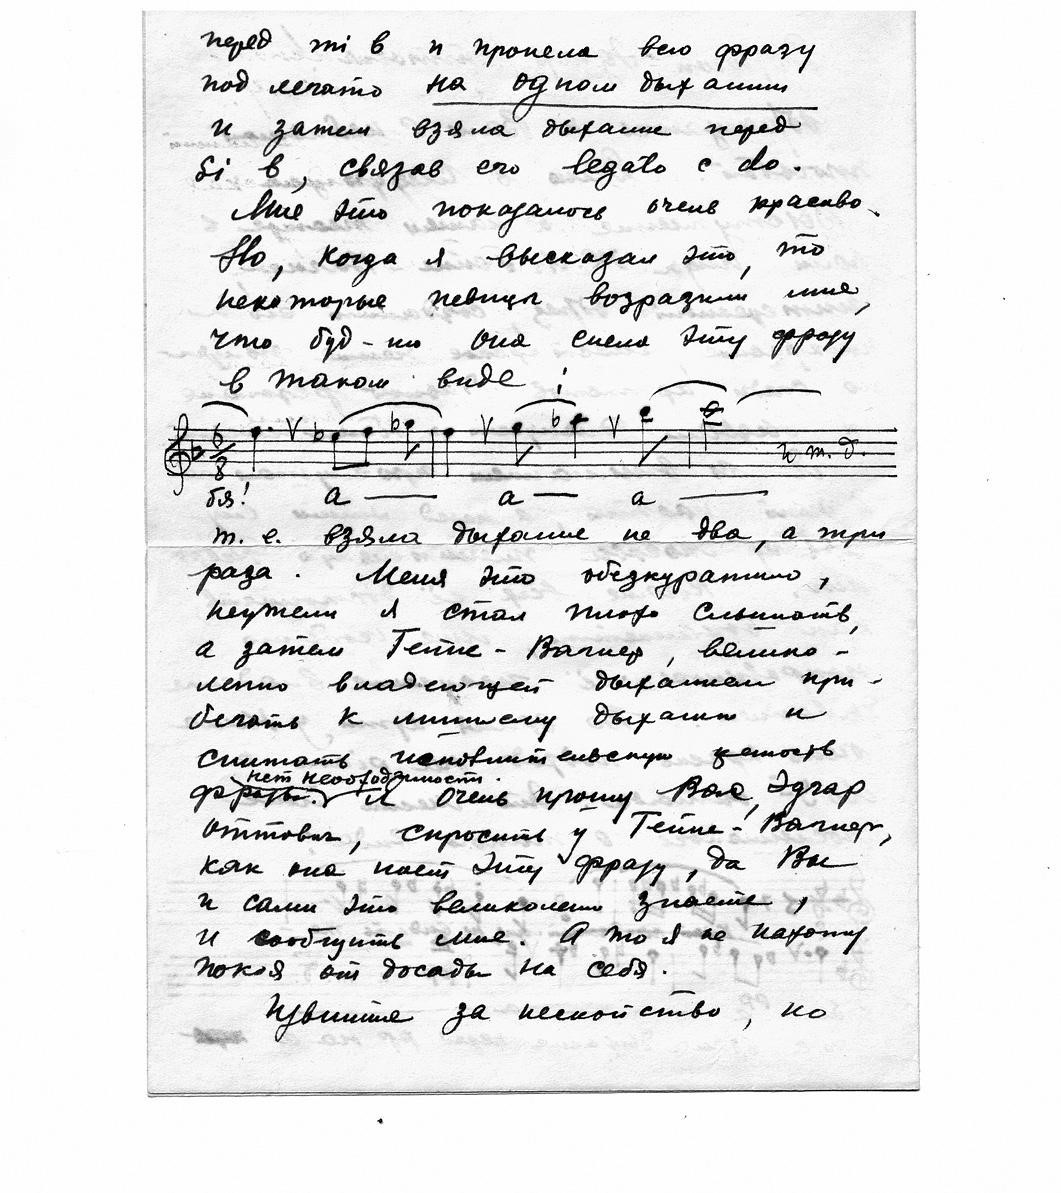 перед mi в и пропела всю фразу
под легато на одном дыхании
и затем взяла дыхание перед
si в, связав его legato с do.
Мне это показалось очень красиво.
Но, когда я высказал это, то
некоторые певицы возразили мне,
что буд-то она спела эту фразу
в таком виде:
и т. д.
бя! а — а — а —
т. е. взяла дыхание не два, а три
раза. Меня это обезкуражило,
неужели я стал плохо слышать,
а затем Гейне-Вагнер, велико-
лепно владеющей дыханием при-
бегать к лишнему дыханию и
снижать исполнительскую ценность
нет необходимости.
фразы. Я очень прошу Вас, Эдгар
Оттович, спросить у Гейне-Вагнер,
как она поет эту фразу, да Вы
и сами это великолепно знаете,
и сообщить мне. А то я не нахожу
покоя от досады на себя.
Извините за беспокойство, но